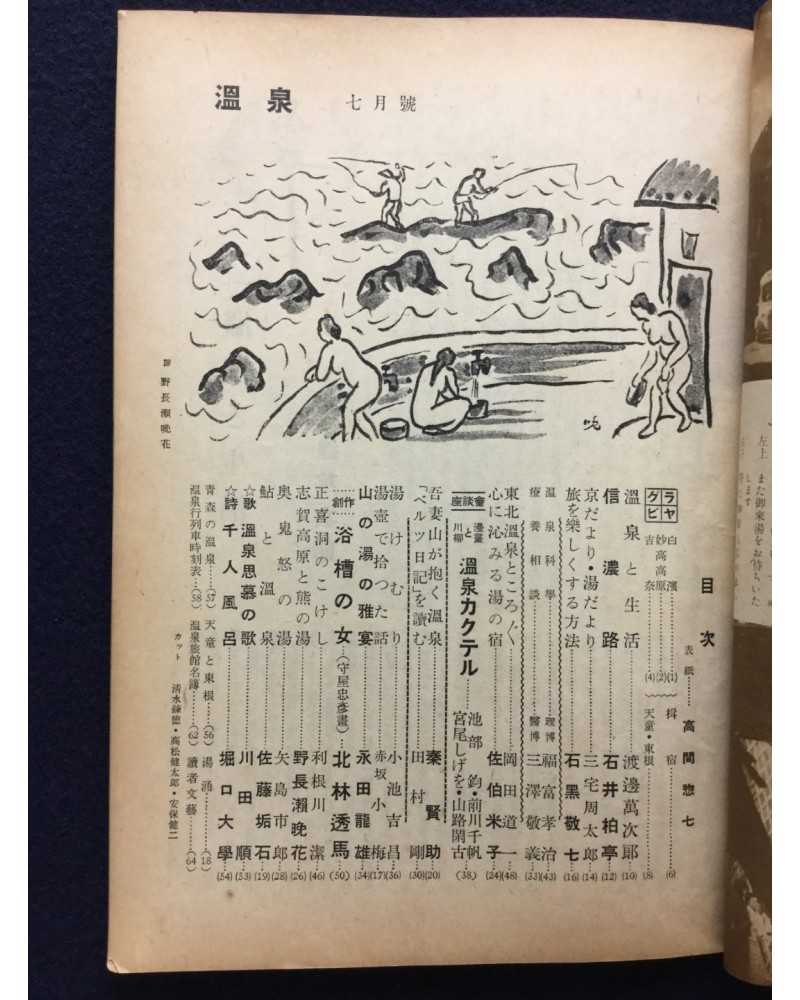 溫泉 七月號
扉 野長瀨晩花
晩
目次
表紙……高間惣七
グラビヤ
白濱……(1)
妙高高原……(2)
吉奈……(4)
揖宿……(6)
天童・東根……(8)
溫泉と生活……渡邊萬次郎(10)
信濃路……石井柏亭(12)
京だより・湯だより……三宅周太郎(14)
旅を樂しくする方法……石黑敬七(16)
溫泉科學……理博 福富孝治(43)
療養相談……醫博 三澤敬義(33)
東北溫泉ところ〲……岡田道一(48)
心に沁みる湯の宿……佐伯米子(24)
座談會 漫畫と川柳 溫泉カクテル……池部鈞・前川千帆 宮尾しげを・山路閑古(38)
吾妻山が抱く溫泉……秦賢助(20)
「ベルツ日記」を讀む……田村剛(30)
湯けむり……小池吉昌(36)
湯壺で拾つた話……赤坂小梅(17)
山の湯の雅宴……永田龍雄(34)
創作 浴槽の女(守屋忠彥畫)……北林透馬(50)
正喜洞のこけし……利根川潔(46)
志賀高原と熊の湯……野長瀨晩花(26)
奧鬼怒の湯……矢島市郎(28)
鮎と溫泉……佐藤垢石(19)
☆歌 溫泉思慕の歌……川田順(53)
☆詩 千人風呂……堀口大學(54)
靑森の溫泉……(57) 天童と東根……(56) 湯涌……(18)
溫泉行列車時刻表……(58) 溫泉旅館名簿……(62) 讀者文藝……(64)
カット 淸水錬德・高松健太郎・安保健二
左上 また御來湯をお待ちいた
します